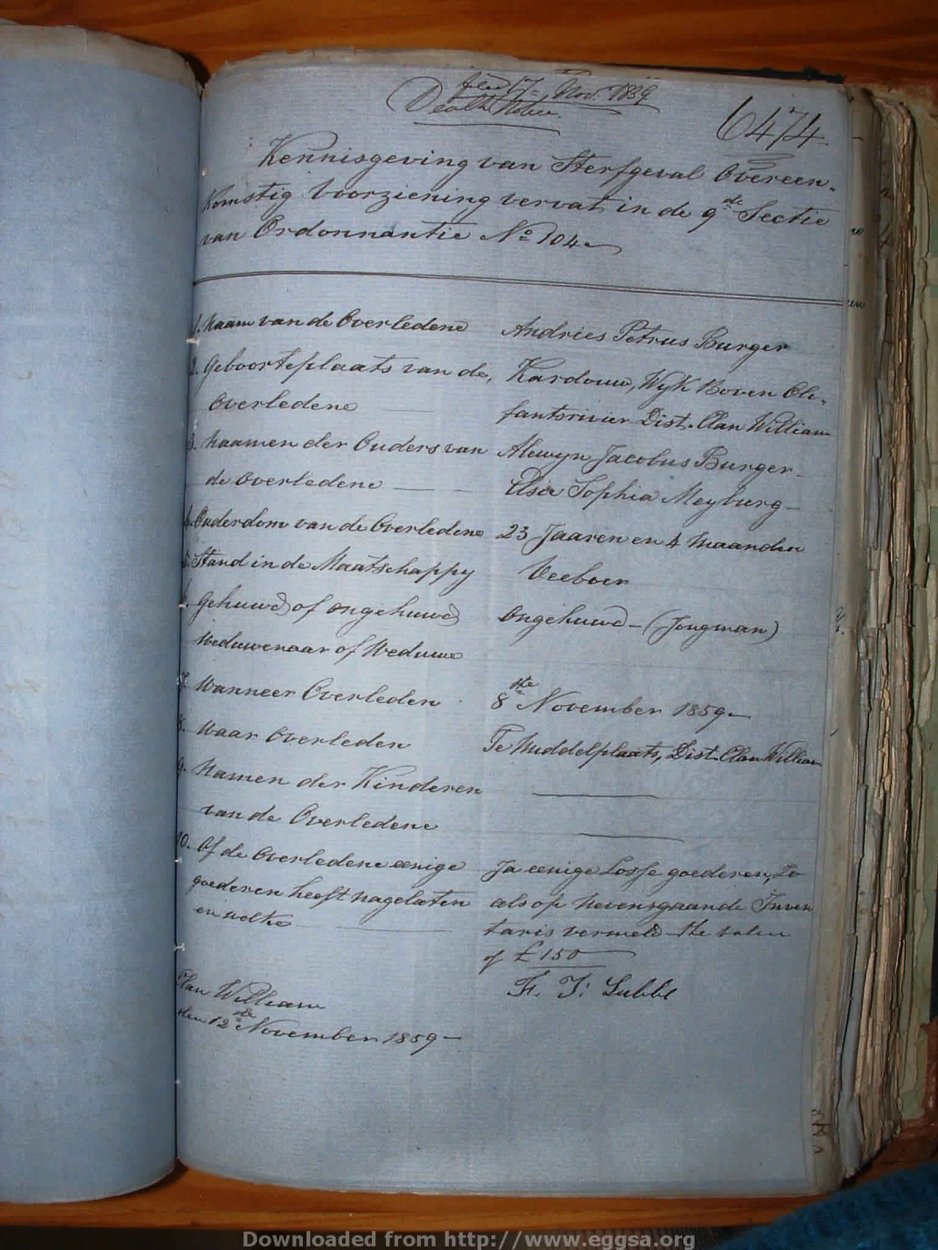 filed 17 Nov. 1859
Death Notice.
6474
Kennisgeving van Sterfgeval Overeen-
komstig Voorziening vervat in de 9de Sectie
van Ordonnantie No 104
1. Naam van de Overledene Andries Petrus Burger
2. Geboorteplaats van de, Kardouw, Wyk Boven Oli-
Overledene fantsrivier Dist. Clan William
3. Naamen der Ouders van Alewyn Jacobus Burger
de Overledene Elsie Sophia Meyburg
4. Ouderdom van de Overledene 23 Jaaren en 4 Maanden
5. Stand in de Maatschappy Veeboer
6. Gehuwd of ongehuwd Ongehuwd - (Jongman)
Weduwenaar of Weduwe
7. Wanneer Overleden 8ste November 1859
8. Waar Overleden Te Middelplaats, Dist. Clan William
9. Namen der Kinderen
van de Overledene
10. Of de Overledene eenige Ja eenige Losse goederen, Zo
goederen heeft nagelaten als op nevensgaande Inven
en welke taris vermeld the value
of £150
F. J. Lubbe
Clan William
den 12de November 1859
Downloaded from http://www.eggsa.org